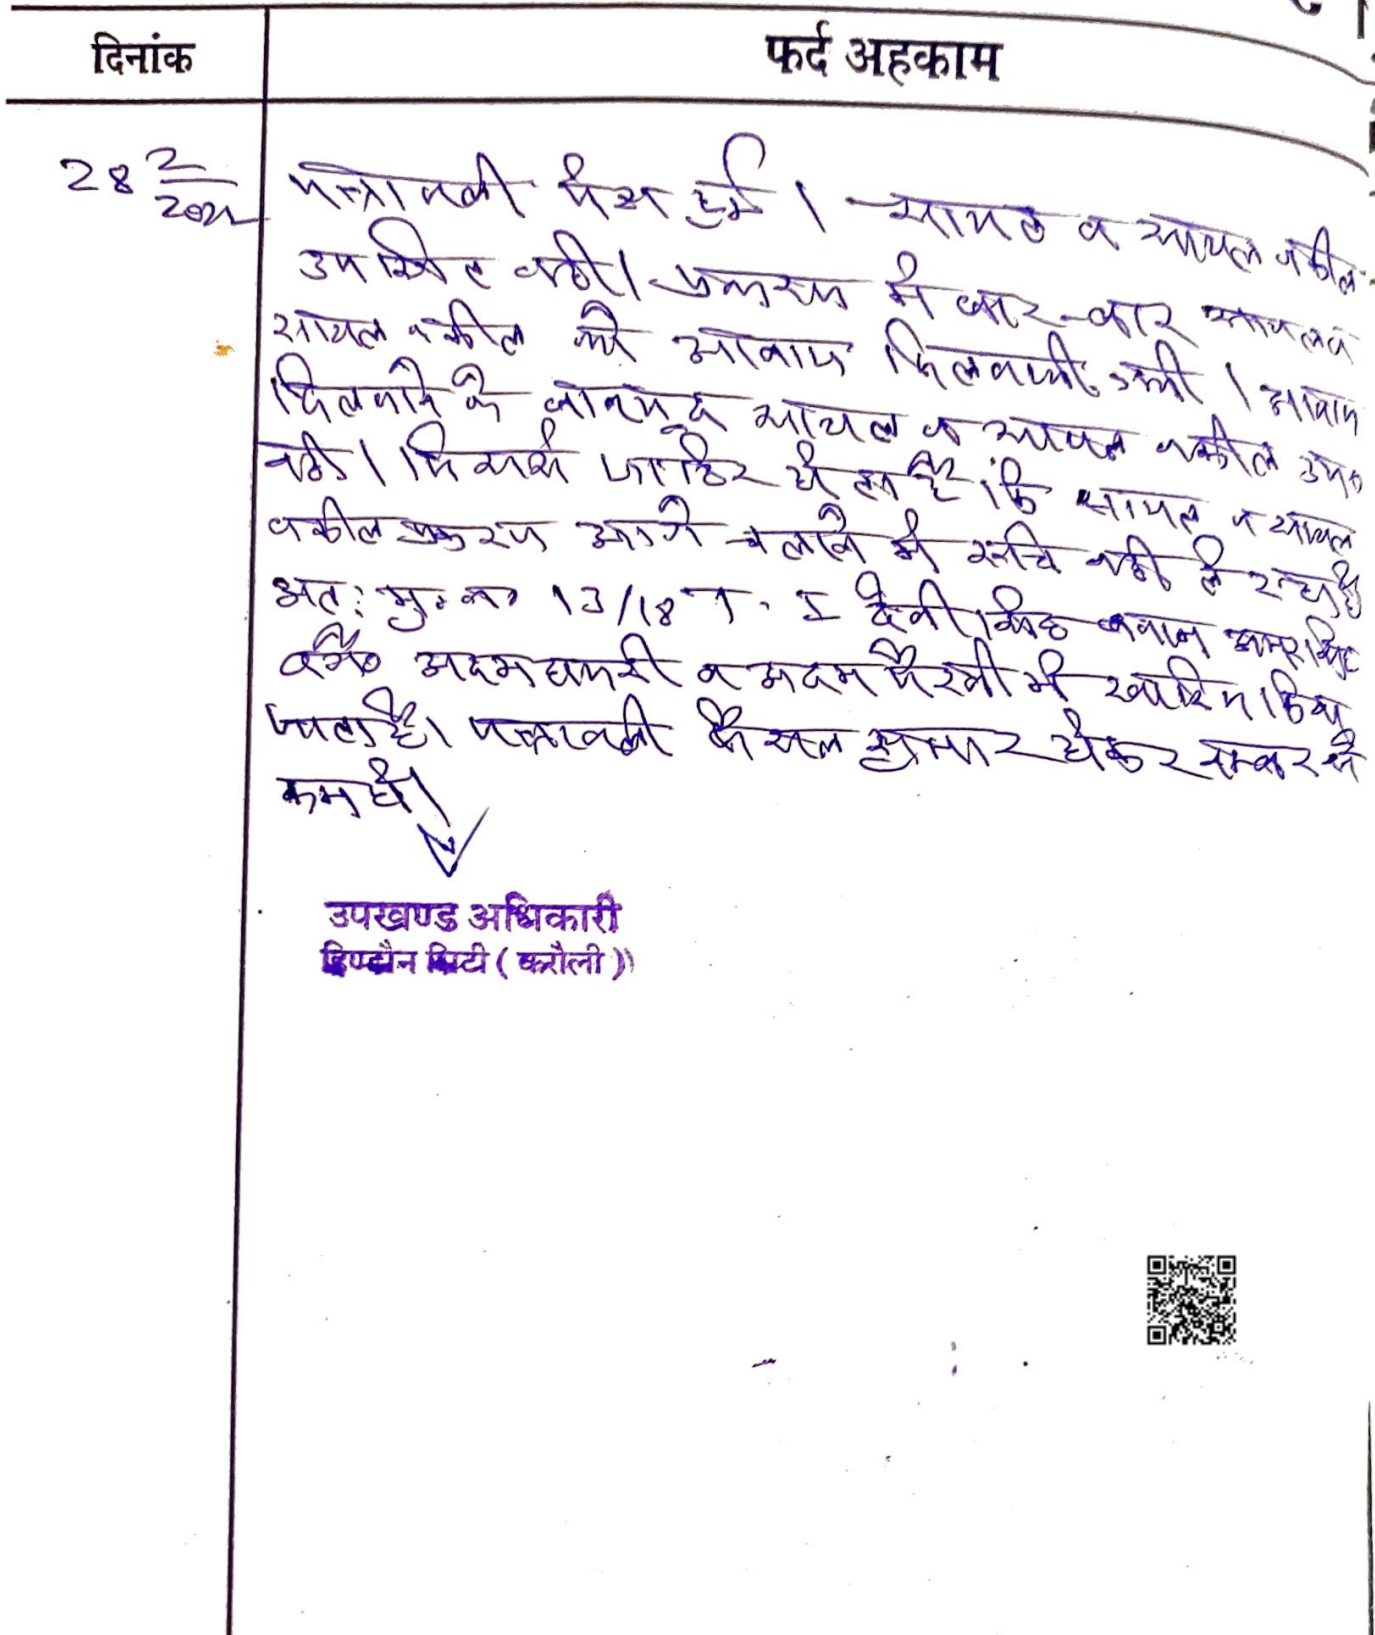 दिनांक
फर्द अहकाम
28 2
पत्रावली पेश हुई। सायल व सायल वकील
उपस्थित नही। प्रकरण मे बार-बार सायल व
सायल वकील को आवाज दिलवायी गयी। आवाज
दिलवाने के बावजूद सायल व सायल वकील उप०
नही। जिससे जाहिर होता है कि सायल व सायल
वकील प्रकरण आगे चलाने मे रूचि नही ले रहे है
अतः मु. न० 13/18 T. I देवी सिंह बनाम अमर सिंह
वगै० अदम हाजरी व अदम पैरवी मे खारिज किया
जाता है। पत्रावली फैसल शुमार होकर नम्बर से
कम हो।
उपखण्ड अधिकारी
हिण्डौन सिटी (करौली)